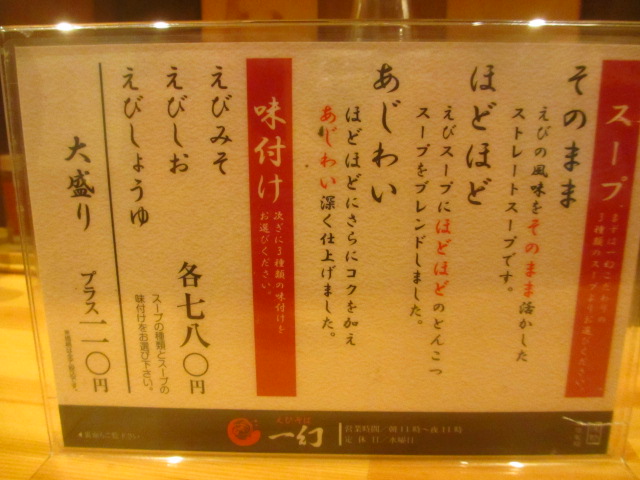 スープ
まずは一幻こだわりの
3種類のスープよりお選びください。
そのまま
えびの風味をそのまま活かした
ストレートスープです。
ほどほど
えびスープにほどほどのとんこつ
スープをブレンドしました。
あじわい
ほどほどにさらにコクを加え
あじわい深く仕上げました。
味付け
次ぎに3種類の味付けを
お選びください。
えびみそ
えびしお
えびしょうゆ
各七八〇円
スープの種類とスープの
味付けをお選び下さい。
大盛り
プラス一一〇円
一幻
営業時間/朝11時〜夜11時
定休日/水曜日